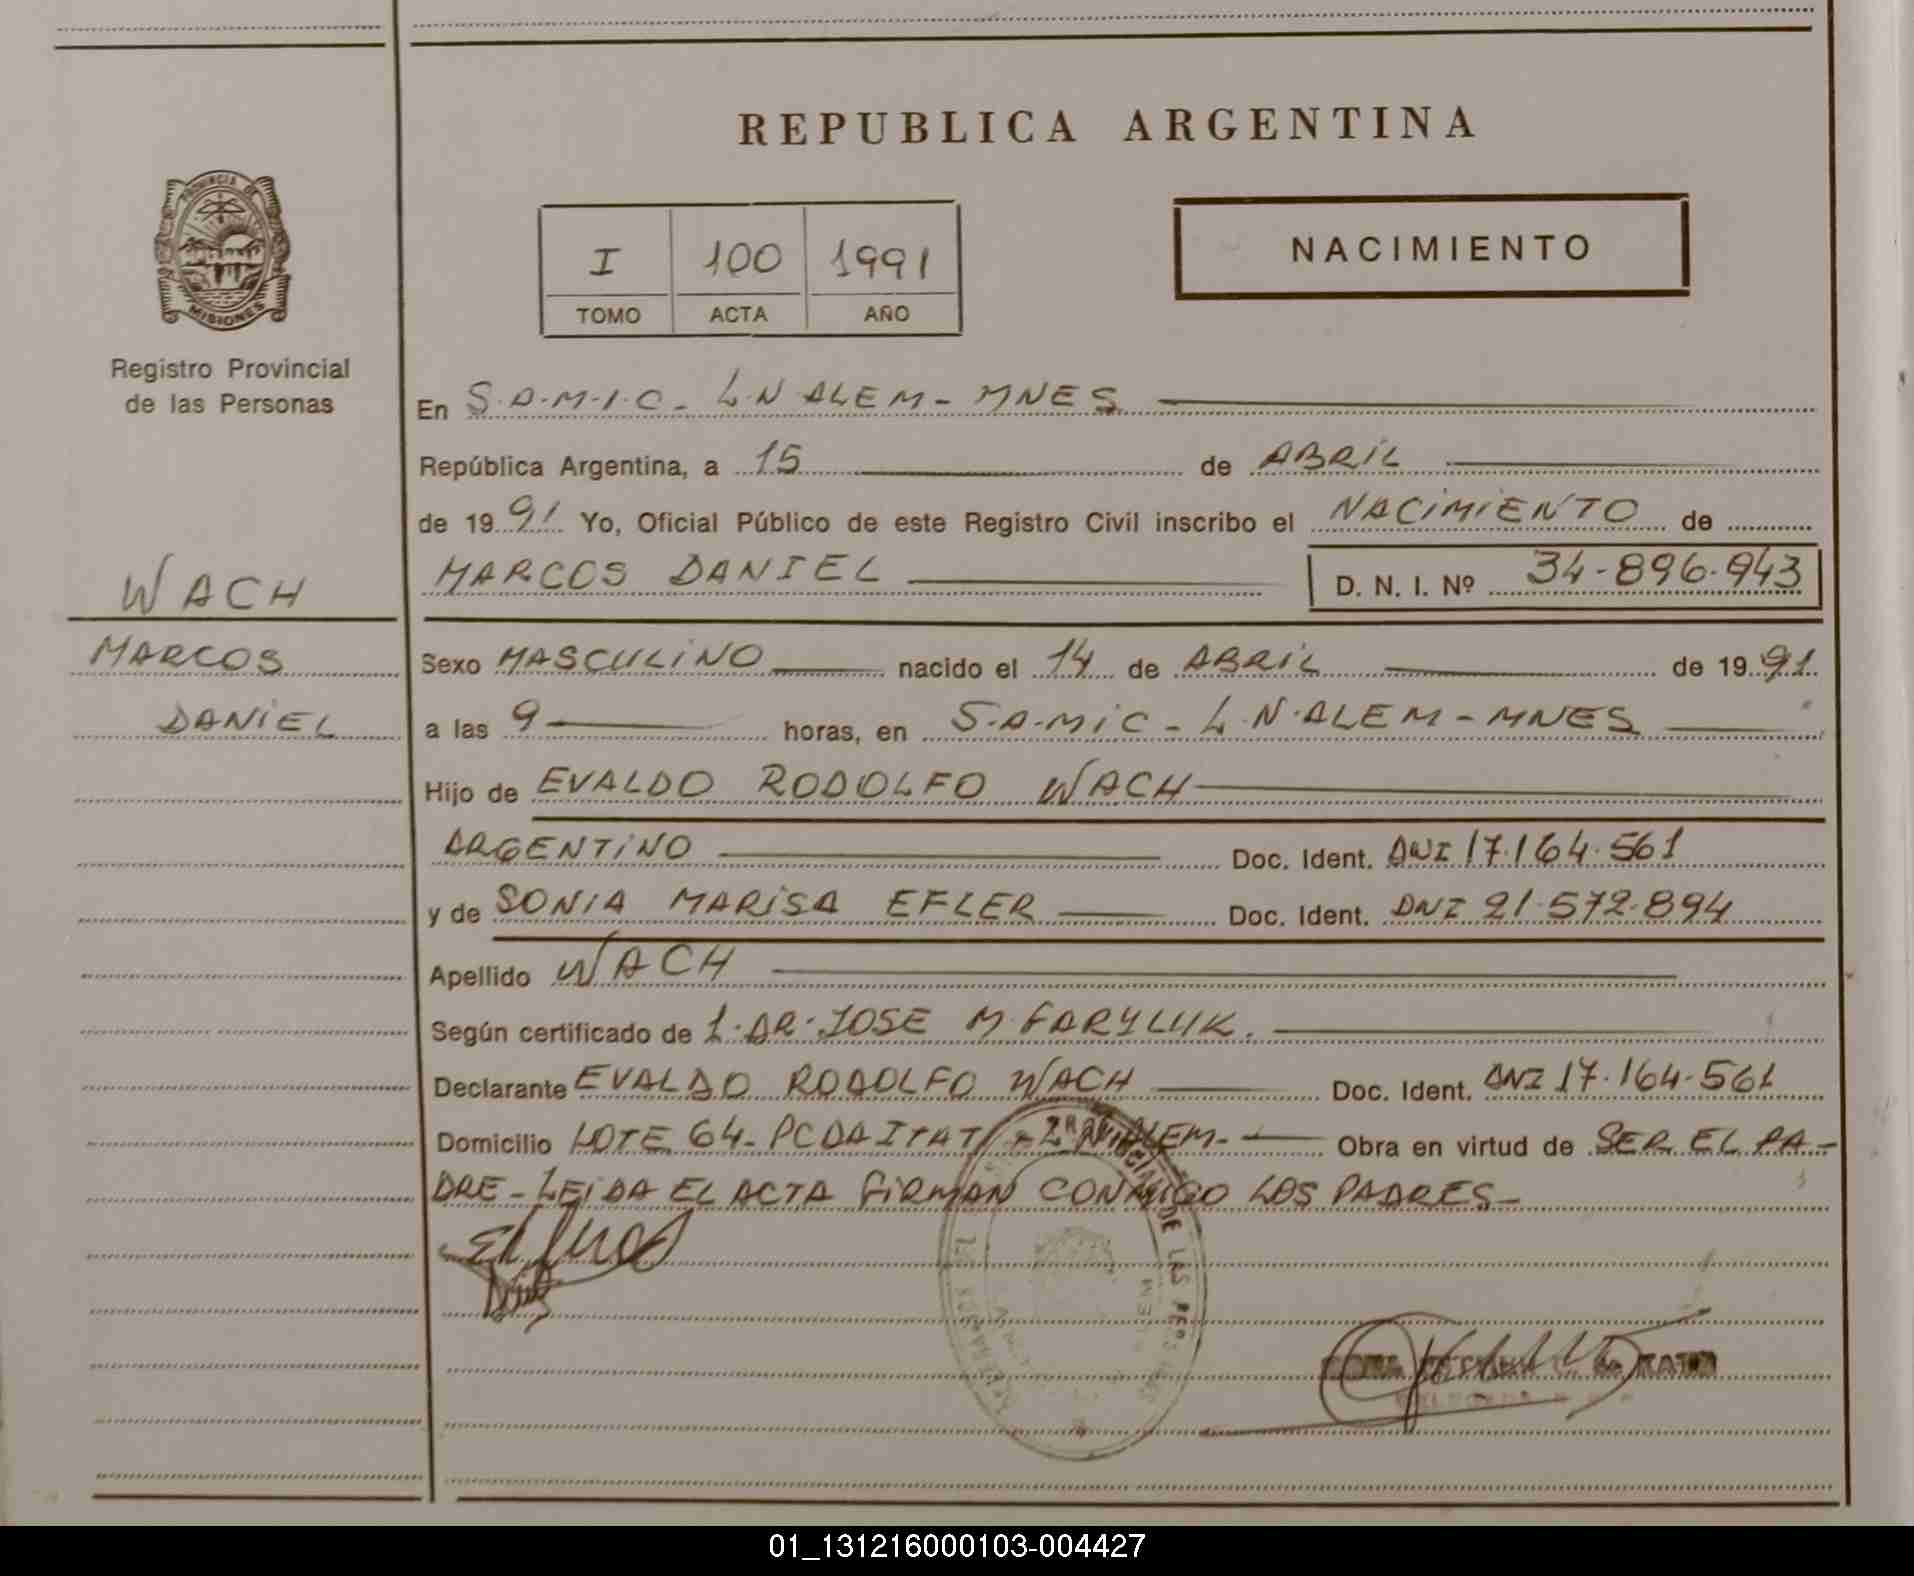 REPUBLICA ARGENTINA
PROVINCIA DE
MISIONES
Registro Provincial
de las Personas
I 100 1991
TOMO ACTA AÑO
NACIMIENTO
En S.A.M.I.C. - L.N ALEM - MNES
República Argentina, a 15 de ABRIL
de 1991 Yo, Oficial Público de este Registro Civil inscribo el NACIMIENTO de
MARCOS DANIEL D. N. I. Nº 34-896-943
WACH
MARCOS
DANIEL
Sexo MASCULINO nacido el 14 de ABRIL de 1991
a las 9 horas, en S.A.MIC - L.N.ALEM - MNES
Hijo de EVALDO RODOLFO WACH
ARGENTINO Doc. Ident. DNI 17.164.561
y de SONIA MARISA EFLER Doc. Ident. DNI 21.572.894
Apellido WACH
Según certificado de 1. DR. JOSE M. FARYLUK.
Declarante EVALDO RODOLFO WACH Doc. Ident. DNI 17.164.561
Domicilio LOTE 64 - PCDA ITATI - L.N.ALEM - Obra en virtud de SER EL PA-
DRE - LEIDA EL ACTA FIRMAN CONMIGO LOS PADRES -
DE LAS
01_131216000103-004427